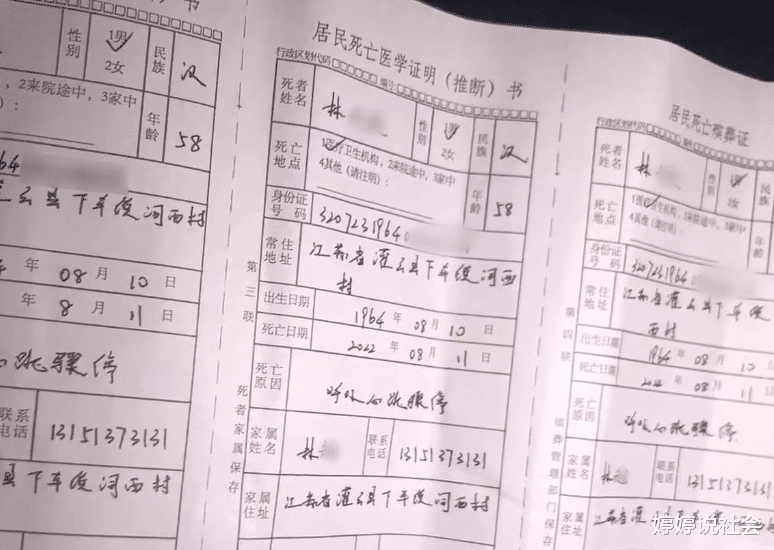 书
性别
1男
2女
民族
汉
，2来院途中，3家中
）：
年龄
58
964
灌云县下车
河西村
年 08 月 10 日
年 8 月 11 日
心跳骤停
联系电话
13151373131
县下车
河西村
居民死亡医学证明（推断）书
行政区划代码
编号
死者姓名
林
性别
1男
2女
民族
汉
死亡地点
1医疗卫生机构，2来院途中，3家中
4其他（请注明）：
年龄
58
身份证号码
3207231964
常住地址
江苏省灌云县下车
河西村
出生日期
1964 年 08 月 10 日
死亡日期
2022 年 08 月 11 日
死亡原因
呼吸心跳骤停
家属姓名
林
联系电话
13151373131
家属住址
江苏省灌云县下车
河西村
第三联
死者家属保存
居民死亡殡葬证
死者姓名
林
性别
1男
2女
死亡地点
1医疗卫生机构，2来院途中，3家中
4其他（请注明）：
身份证号码
3207231964
常住地址
江苏省灌云县下车
西村
出生日期
1964 年 08 月 10
死亡日期
2022 年 08 月 11
死亡原因
呼吸心跳骤停
家属姓名
林
联系电话
131513731
家属住址
江苏省灌云县下车
第四联
殡葬管理部门保存
婷婷说社会